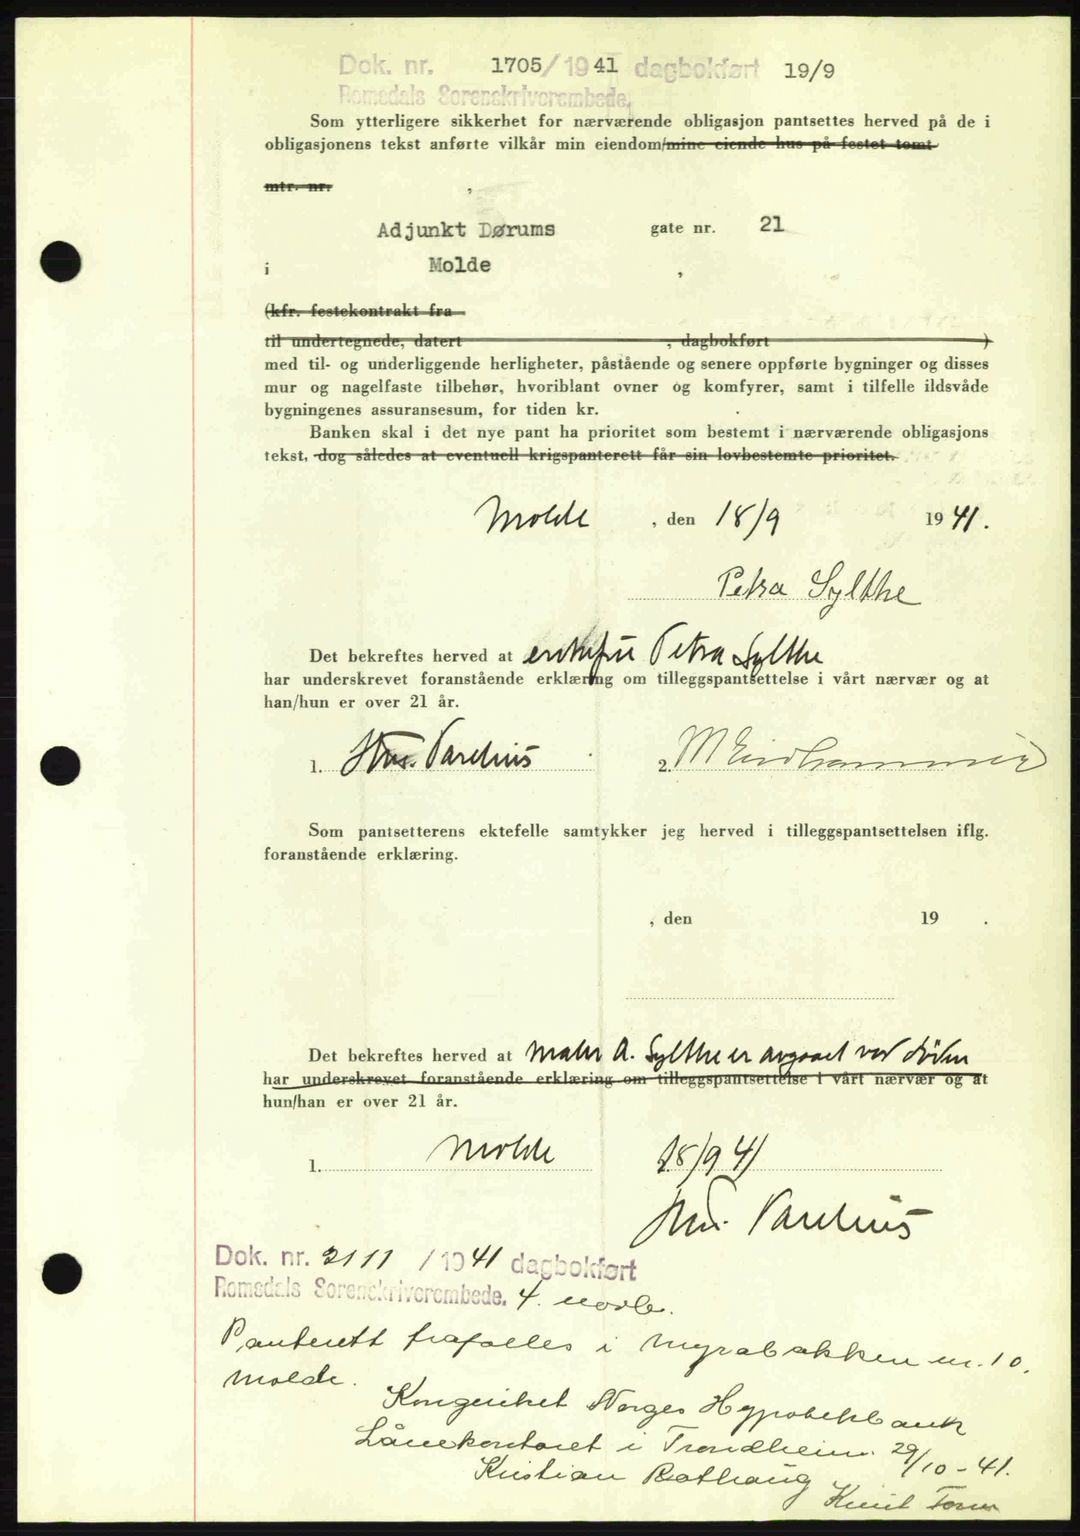 Dok. nr. 1705/1941 dagbokført 19/9
Romsdals Sorenskriverembede.
Som ytterligere sikkerhet for nærværende obligasjon pantsettes herved på de i
obligasjonens tekst anførte vilkår min eiendom/mine eiende hus på festet tomt
mtr. nr. ,
Adjunkt Dørums gate nr. 21
i Molde ,
(kfr. festekontrakt fra
til undertegnede, datert , dagbokført )
med til- og underliggende herligheter, påstående og senere oppførte bygninger og disses
mur og nagelfaste tilbehør, hvoriblant ovner og komfyrer, samt i tilfelle ildsvåde
bygningenes assuransesum, for tiden kr. .
Banken skal i det nye pant ha prioritet som bestemt i nærværende obligasjons
tekst, dog således at eventuell krigspanterett får sin lovbestemte prioritet.
Molde , den 18/9 1941.
Petra Sylthe
Det bekreftes herved at enkefru Petra Sylthe
har underskrevet foranstående erklæring om tilleggspantsettelse i vårt nærvær og at
han/hun er over 21 år.
1. 2.
Som pantsetterens ektefelle samtykker jeg herved i tilleggspantsettelsen iflg.
foranstående erklæring.
, den 19 .
Det bekreftes herved at maler A. Sylthe er avgaaet ved døden
har underskrevet foranstående erklæring om tilleggspantsettelse i vårt nærvær og at
hun/han er over 21 år.
1. Molde 18/9 41
Dok. nr. 2111 /1941 dagbokført
Romsdals Sorenskriverembede. 4. novbr.
Panterett frafalles i Myrabakken nr. 10.
Molde.
Kongeriket Norges Hypotekbank
Lånekontoret i Trondheim 29/10-41.
Kristian Rothaug
Knut